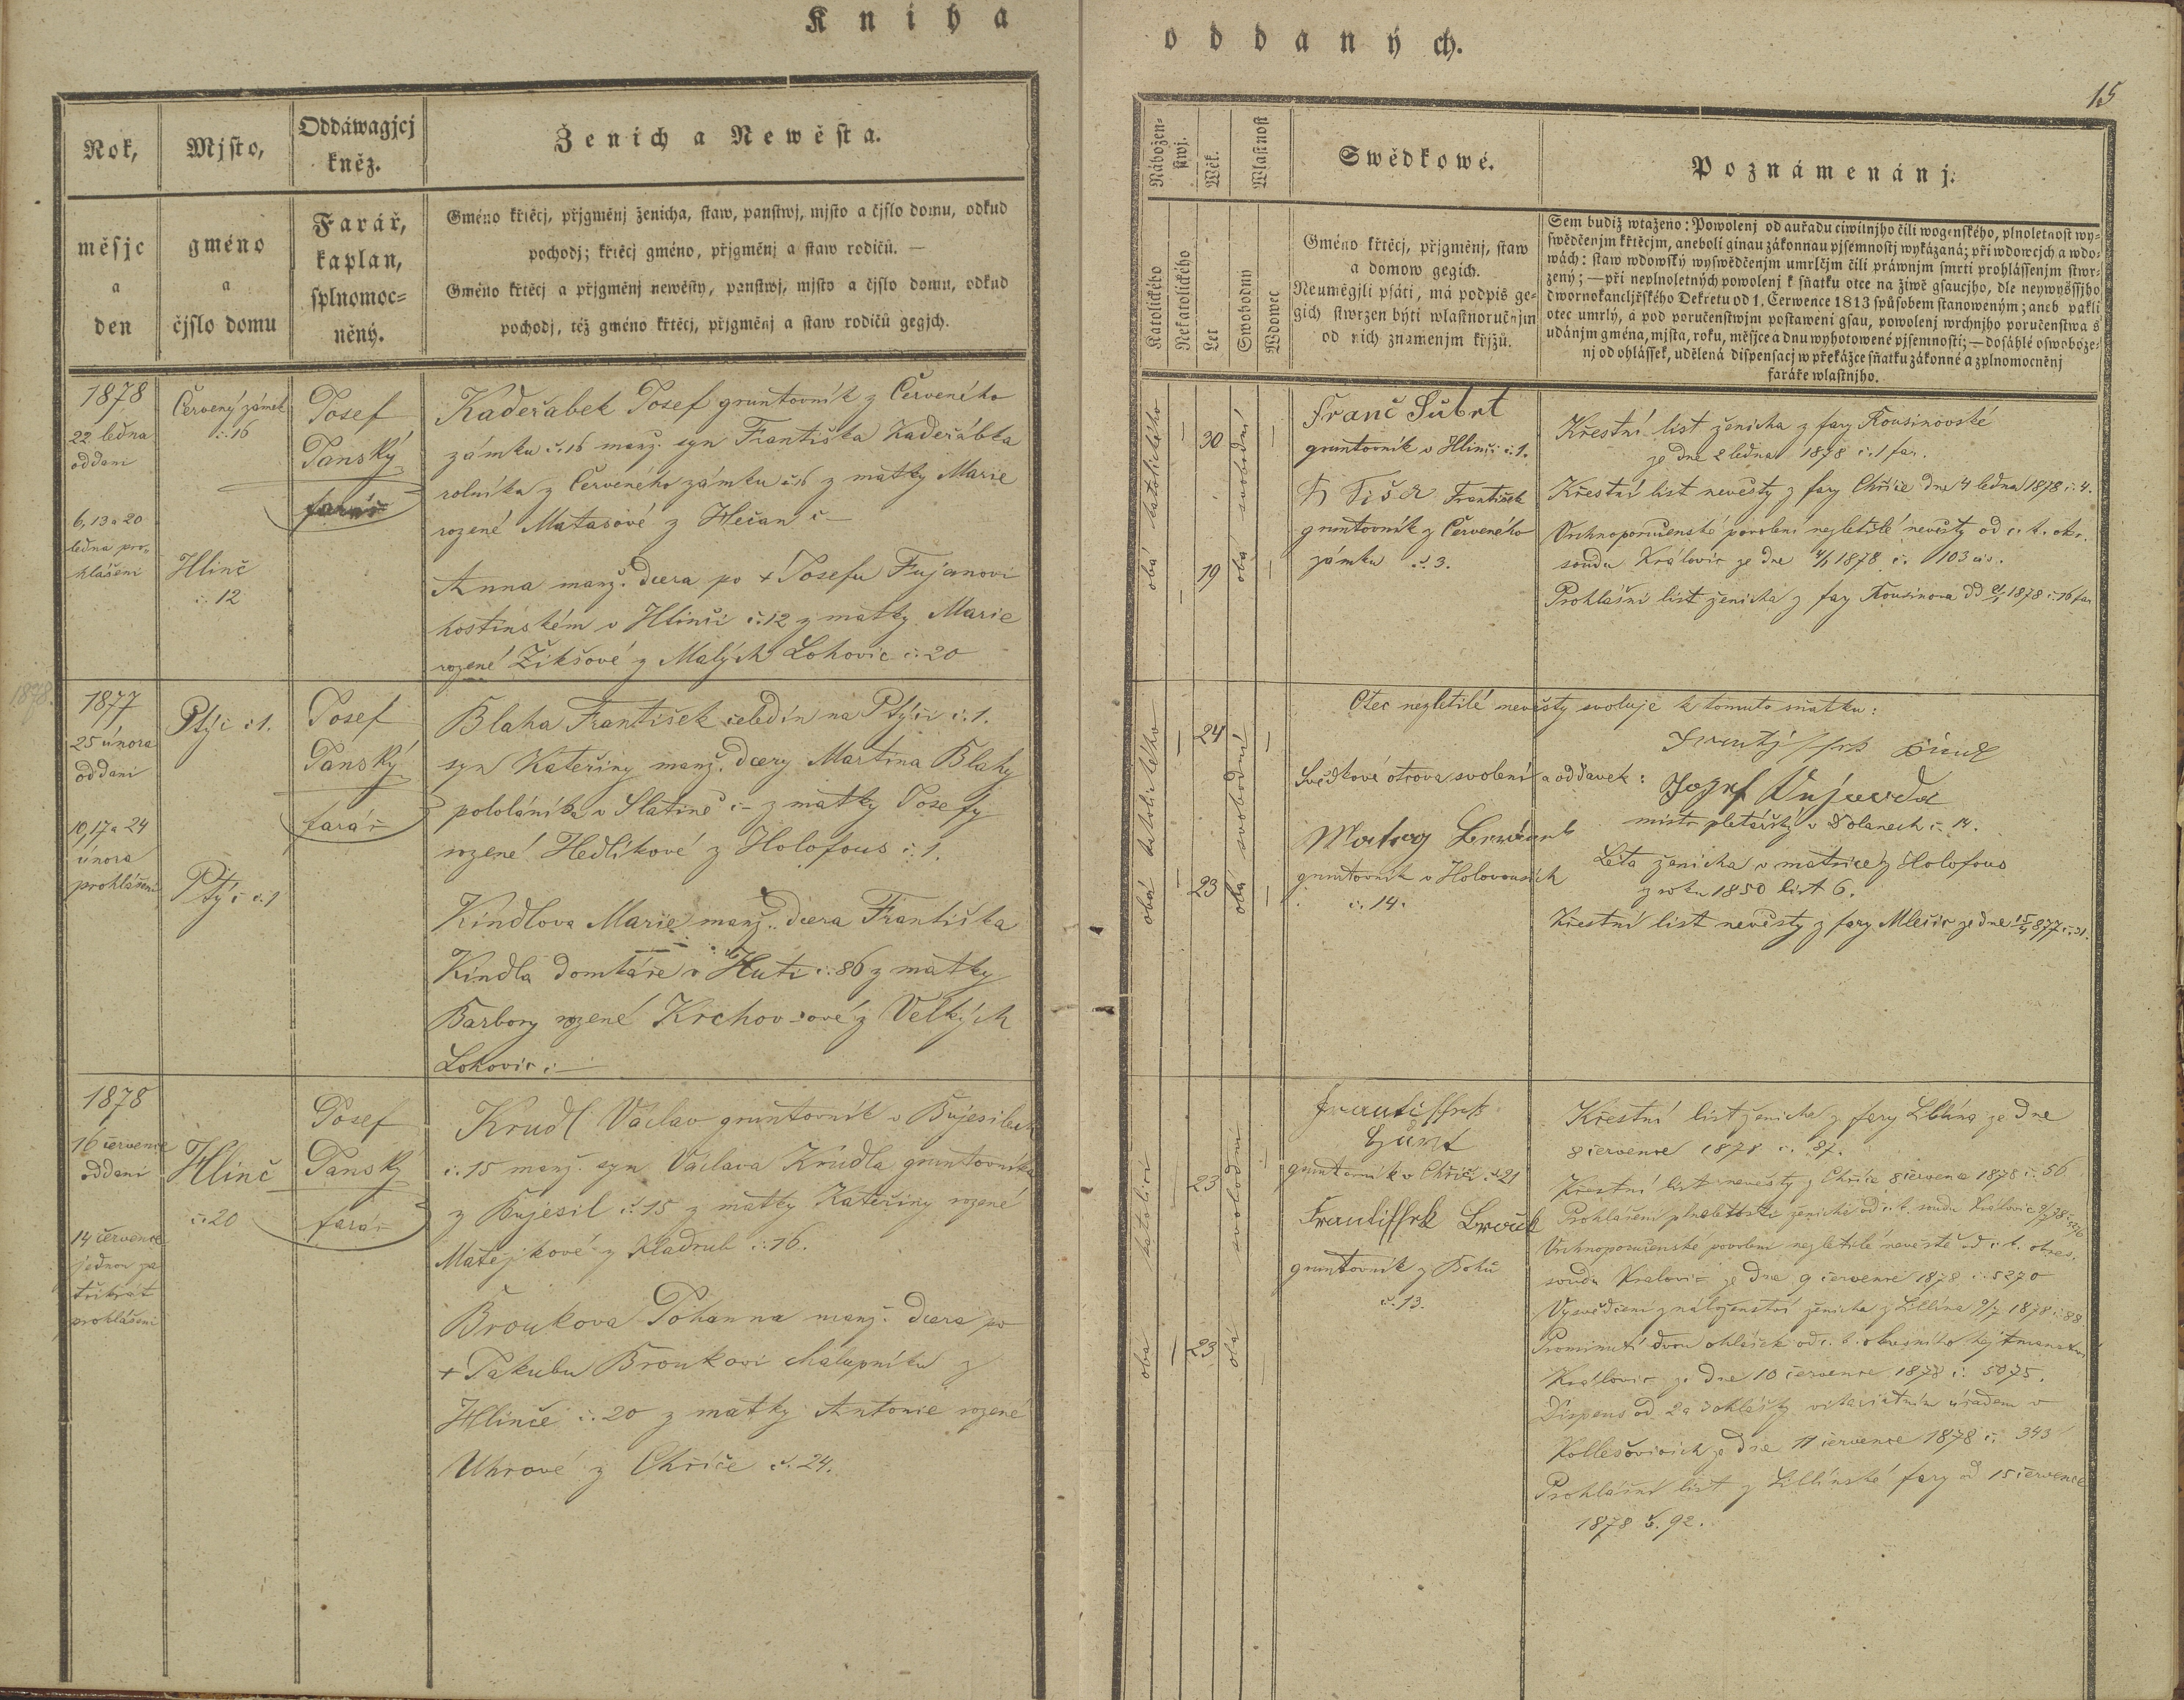 Kniha
oddaných.
15
Rok,
Mjsto,
Oddáwagjcj
kněz.
Ženich a Newěsta.
měsjc
a
den
gméno
a
čjslo domu
Farář,
kaplan,
splnomoc-
něný.
Gméno křtěcj, přjgměnj ženicha, staw, panstwj, mjsto a čjslo domu, odkud
pochodj; křtěcj gméno, přjgměnj a staw rodičů. —
Gméno křtěcj a přjgměnj newěsty, panstwj, mjsto a čjslo domu, odkud
pochodj, též gméno křtěcj, přjgměnj a staw rodičů gegjch.
1878
22 ledna
oddani
6, 13 a 20
ledna pro-
hlášeni
Červený zámek
č. 16
Hlinč
č. 12
Josef
Janský
farář
Kadeřábek Josef gruntovník z Červeného
zámku č. 16 manž. syn Františka Kadeřábka
rolníka z Červeného zámku č. 16 z matky Marie
rozené Matasové z Hečan č —
Anna manž. dcera po + Josefu Fujanovi
hostinském v Hlinči č. 12 z matky Marie
rozené Žikšové z Malých Lohovic č. 20
1878.
1877
25 února
oddani
10, 17 a 24
února
prohlášeni
Ptýč č 1.
Ptýč č. 1
Josef
Janský
farář
Blaha František čeledín na Ptýči č. 1.
syn Kateřiny manž. dcery Martina Blahy
pololáníka v Slatině č — z matky Josefy
rozené Hedlíkové z Holofous č. 1.
Kindlova Marie manž. dcera Františka
Kindla domkáře v Huti č. 86 z matky
Barbory rozené Krchovové z Velkých
Lohovic č. —
1878
16 července
oddani
14 července
jednou za
třikrát
prohlášeni
Hlinč
č. 20
Josef
Janský
farář
Krudl Václav gruntovník v Bujesilech
č. 15 manž. syn Václava Krúdla gruntovníka
z Bujesil č. 15 z matky Kateřiny rozené
Matějkové z Kladrub č. 16.
Broukova Johanna manž. dcera po
+ Jakubu Broukovi chalupníku z
Hlinče č. 20 z matky Antonie rozené
Uhrové z Chříče č. 24.
Náboženstwj.
Wěk.
Wlastnost
Swědkowé.
Poznámenánj.
Katolického
Nekatolického
Let
Swobodný
Wdowec
Gméno křtěcj, přjgměnj, staw
a domow gegich.
Neumějgli psáti, má podpis ge-
gich stwrzen býti wlastnoručnjm
od nich znamenjm křjžů.
Sem budiž wtaženo: Powolenj od auřadu ciwilnjho čili wogenského, plnoletnost wy-
swědčenjm křtěcjm, aneboli ginau zákonnau pjsemnostj wykázaná; při wdowcjch a wdo-
wách: staw wdowský wyswědčenjm umrlčjm čili práwnjm smrti prohlássenjm stwr-
zený; — při neplnoletných powolenj k sňatku otce na žiwě gsaucjho, dle neywyšssjho
dwornokancljřského Dekretu od 1. Čerwence 1813 spůsobem stanoweným; aneb pakli
otec umrlý, a pod poručenstwjm postaweni gsau, powolenj wrchnjho poručenstwa s
udánjm gména, mjsta, roku, měsjce a dnu wyhotowené pjsemnosti; — dosáhlé oswoboze-
nj od ohlássek, udělená dispensacj w překážce sňatku zákonné a zplnomocněnj
faráře wlastnjho.
obá katolického
30
19
obá svobodní
Franc Šubrt
gruntovník v Hlinči č. 1.
Fr Fišer František
gruntovník z Červeného
zámku č. 3.
Křestní list ženicha z fary Kousinovské
ze dne 2 ledna 1878 č. 1 far.
Křestní list nevěsty z fary Chříče dne 4 ledna 1878 č. 4.
Vrchnoporučenské povolení nezletilé nevěsty od c. k. okr.
soudu Kralovic ze dne 4/1 1878 č. 103 civ.
Prohlašní list ženicha z fary Kousinova dd 21/1 1878 č. 16 far
obá katolického
24
23
obá svobodní
Otec nezletilé nevěsty svoluje k tomuto sňatku:
Svědkové otcova svolení a oddavek:
Josef
mistr pletařský v Dolanech č. 14.
gruntovník v Holovousích
č. 14.
Léta ženicha v matrice z Holofous
z roku 1850 list 6.
Křestní list nevěsty z fary Mlečic ze dne 15/4 877 č. 31.
oba katolíci
23
23
obá svobodní
Frantissek
gruntovník v Chříči č. 21
Frantissek Brouček
gruntovník z Bohů
č. 13.
Křestní list ženicha z fary Liblína ze dne
8 července 1878 č. 87.
Křestní list nevěsty z Chříče 8 července 1878 č. 56
Prohlášení plnoletosti ženicha od c. k. soudu Kralovic 9/7 78
Vrchnoporučenské povolení nezletilé nevěstě od c. k. okres.
soudu Kralovic ze dne 9 července 1878 č. 5270
Vysvědčení z náboženství ženicha z Liblína 9/7 1878 č. 88
Prominutí dvou ohlášek od c. k. okresního hejtmanství
Kralovic ze dne 10 července 1878 č. 5075.
Dispens od 2 a 3 ohlášky vikariátním úřadem v
Kollešovicích ze dne 11 července 1878 č. 343
Prohlašní list z Liblínské fary od 15 července
1878 č. 92.